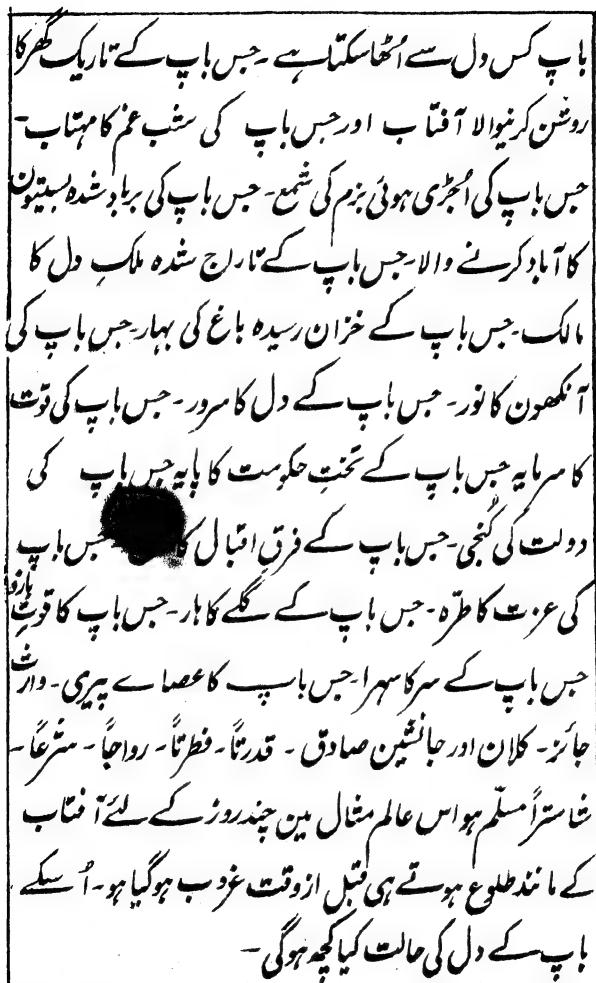 باپ کس دل سے اُٹھا سکتا ہے ۔ جس باپ کے تاریک گھر کا
روشن کرنیوالا آفتاب اور جس باپ کی شب غم کا مہتاب ۔
جس باپ کی اُجڑی ہوئی بزم کی شمع ۔ جس باپ کی برباد شدہ بستیون
کا آباد کرنے والا ۔ جس باپ کے تاراج شدہ ملکِ دل کا
مالک ۔ جس باپ کے خزان رسیدہ باغ کی بہار ۔ جس باپ کی
آنکھون کا نور ۔ جس باپ کے دل کا سرور ۔ جس باپ کی قوّت
کا سرمایہ جس باپ کے تختِ حکومت کا پایہ جس باپ کی
دولت کی کُنجی ۔ جس باپ کے فرقِ اقبال کا جس باپ
کی عزت کا طرّہ ۔ جس باپ کے گلے کا ہار ۔ جس باپ کا قوتِ بازو
جس باپ کے سر کا سہرا ۔ جس باپ کا عصاے پیری ۔ وارث
جائز ۔ کلان اور جانشین صادق ۔ قدرتاً ۔ فطرتاً ۔ رواجاً ۔ شرعاً ۔
شاستراً مسلّم ہو اس عالم مثال مین چند روز کے لئے آفتاب
کے مانند طلوع ہوتے ہی قبل از وقت غروب ہو گیا ہو ۔ اُسکے
باپ کے دل کی حالت کیا کچھ ہوگی ۔